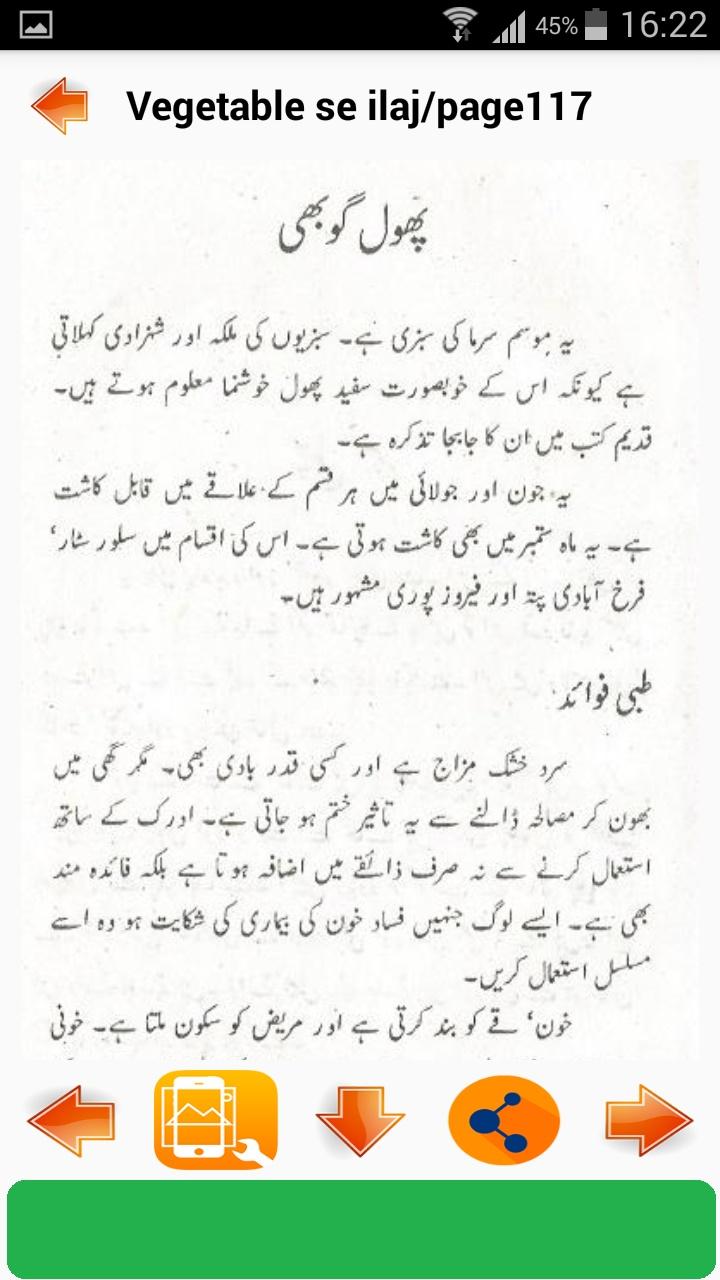 45% 16:22
Vegetable se ilaj/page117
پھول گوبھی
یہ موسم سرما کی سبزی ہے۔ سبزیوں کی ملکہ اور شہزادی کہلاتی
ہے کیونکہ اس کے خوبصورت سفید پھول خوشنما معلوم ہوتے ہیں۔
قدیم کتب میں ان کا جابجا تذکرہ ہے۔
یہ جون اور جولائی میں ہر قسم کے علاقے میں قابل کاشت
ہے۔ یہ ماہ ستمبر میں بھی کاشت ہوتی ہے۔ اس کی اقسام میں سلور سٹار‘
فرخ آبادی پتہ اور فیروز پوری مشہور ہیں۔
طبی فوائد
سرد خشک مزاج ہے اور کسی قدر بادی بھی۔ مگر گھی میں
بھون کر مصالحہ ڈالنے سے یہ تاثیر ختم ہو جاتی ہے۔ ادرک کے ساتھ
استعمال کرنے سے نہ صرف ذائقے میں اضافہ ہوتا ہے بلکہ فائدہ مند
بھی ہے۔ ایسے لوگ جنہیں فساد خون کی بیماری کی شکایت ہو وہ اسے
مسلسل استعمال کریں۔
خون‘ قے کو بند کرتی ہے اور مریض کو سکون ملتا ہے۔ خونی